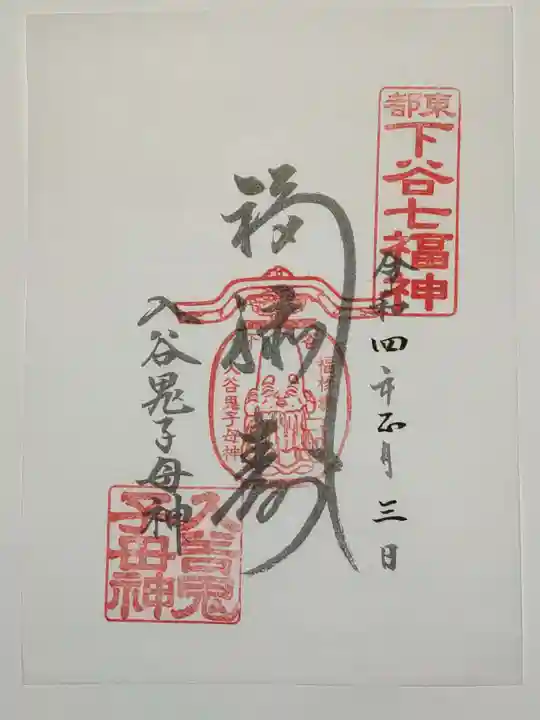 東都
下谷七福神
令和四年正月三日
福禄寿
下谷
福禄寿
入谷鬼子母神
入谷鬼子母神
入谷鬼子母神